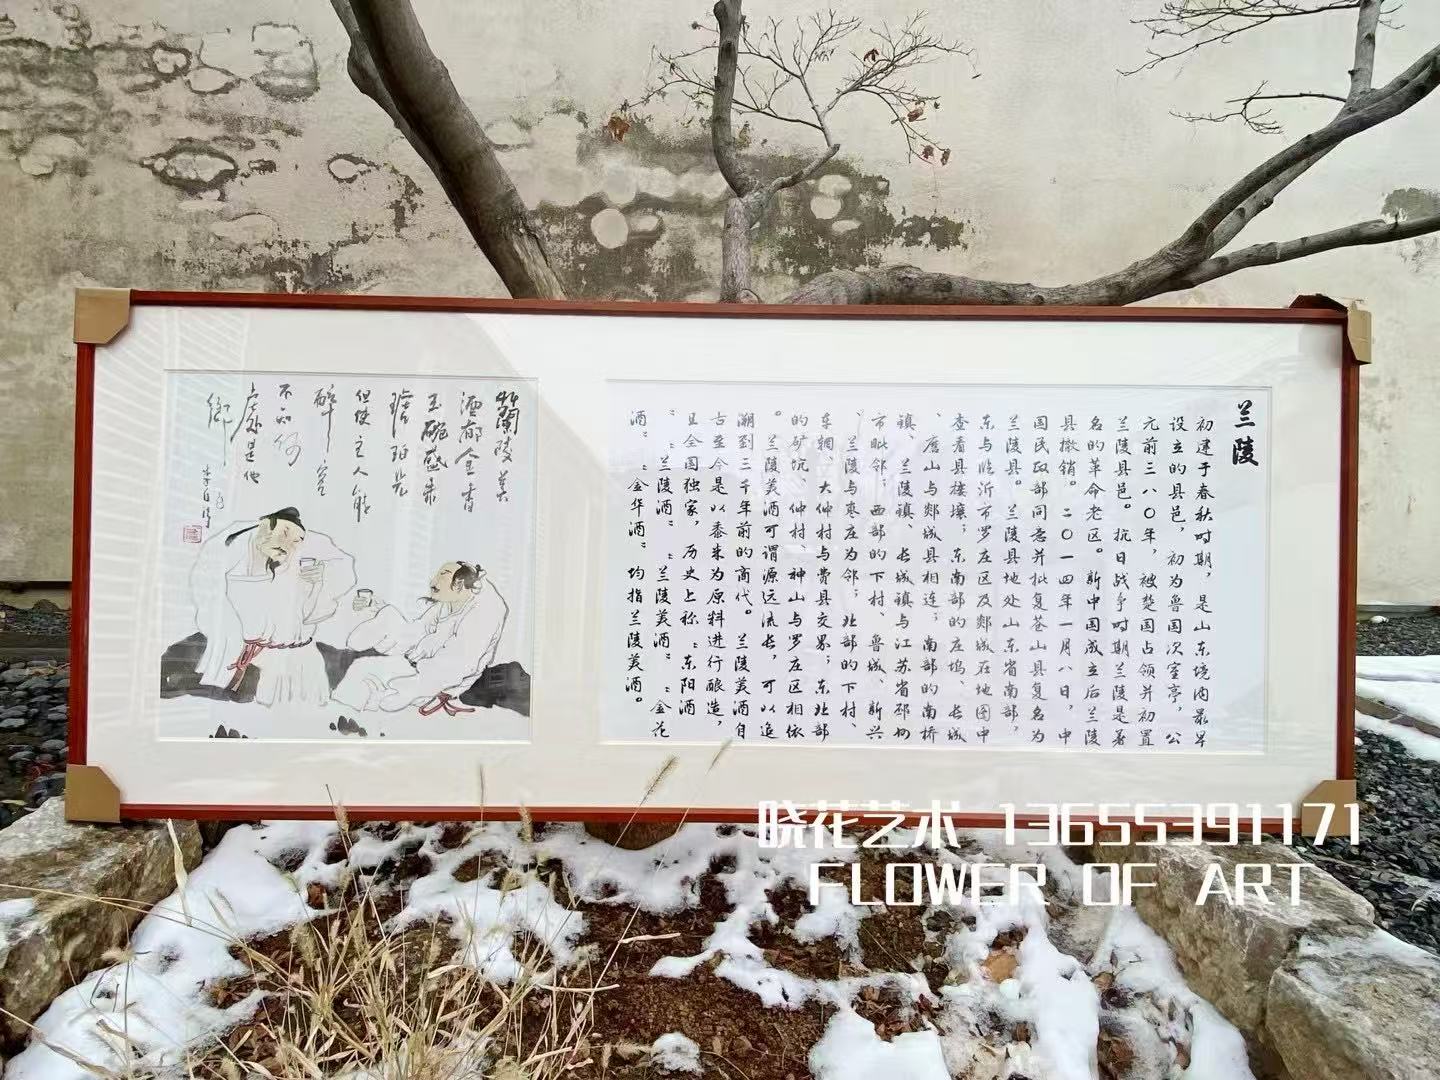 兰陵
初建于春秋时期，是山东境内最早
设立的县邑，初为鲁国次室亭，公
元前三八〇年，被楚国占领并初置
兰陵县邑。抗日战争时期兰陵是著
名的革命老区。新中国成立后兰陵
县撤销。二〇一四年一月八日，中
国民政部同意并批复苍山县复名为
兰陵县。兰陵县地处山东省南部，
东与临沂市罗庄区及郯城在地图中
查看县接壤；东南部的庄坞、长城
、磨山与郯城县相连；南部的南桥
镇、兰陵镇、长城镇与江苏省邳州
市毗邻；西部的下村、鲁城、新兴
、兰陵与枣庄为邻；北部的下村、
车辋、大仲村与费县交界；东北部
的矿坑、仲村、神山与罗庄区相依
。兰陵美酒可谓源远流长，可以追
溯到三千年前的商代。兰陵美酒自
古至今是以黍米为原料进行酿造，
且全国独家，历史上称“东阳酒
”“兰陵酒”“兰陵美酒”“金花
酒”“金华酒”均指兰陵美酒。
蘭陵美
酒郁金香
玉碗盛来
琥珀光
但使主人能
醉客
不知何
處是他
鄉
李白詩
晓花艺术 13655391171
FLOWER OF ART